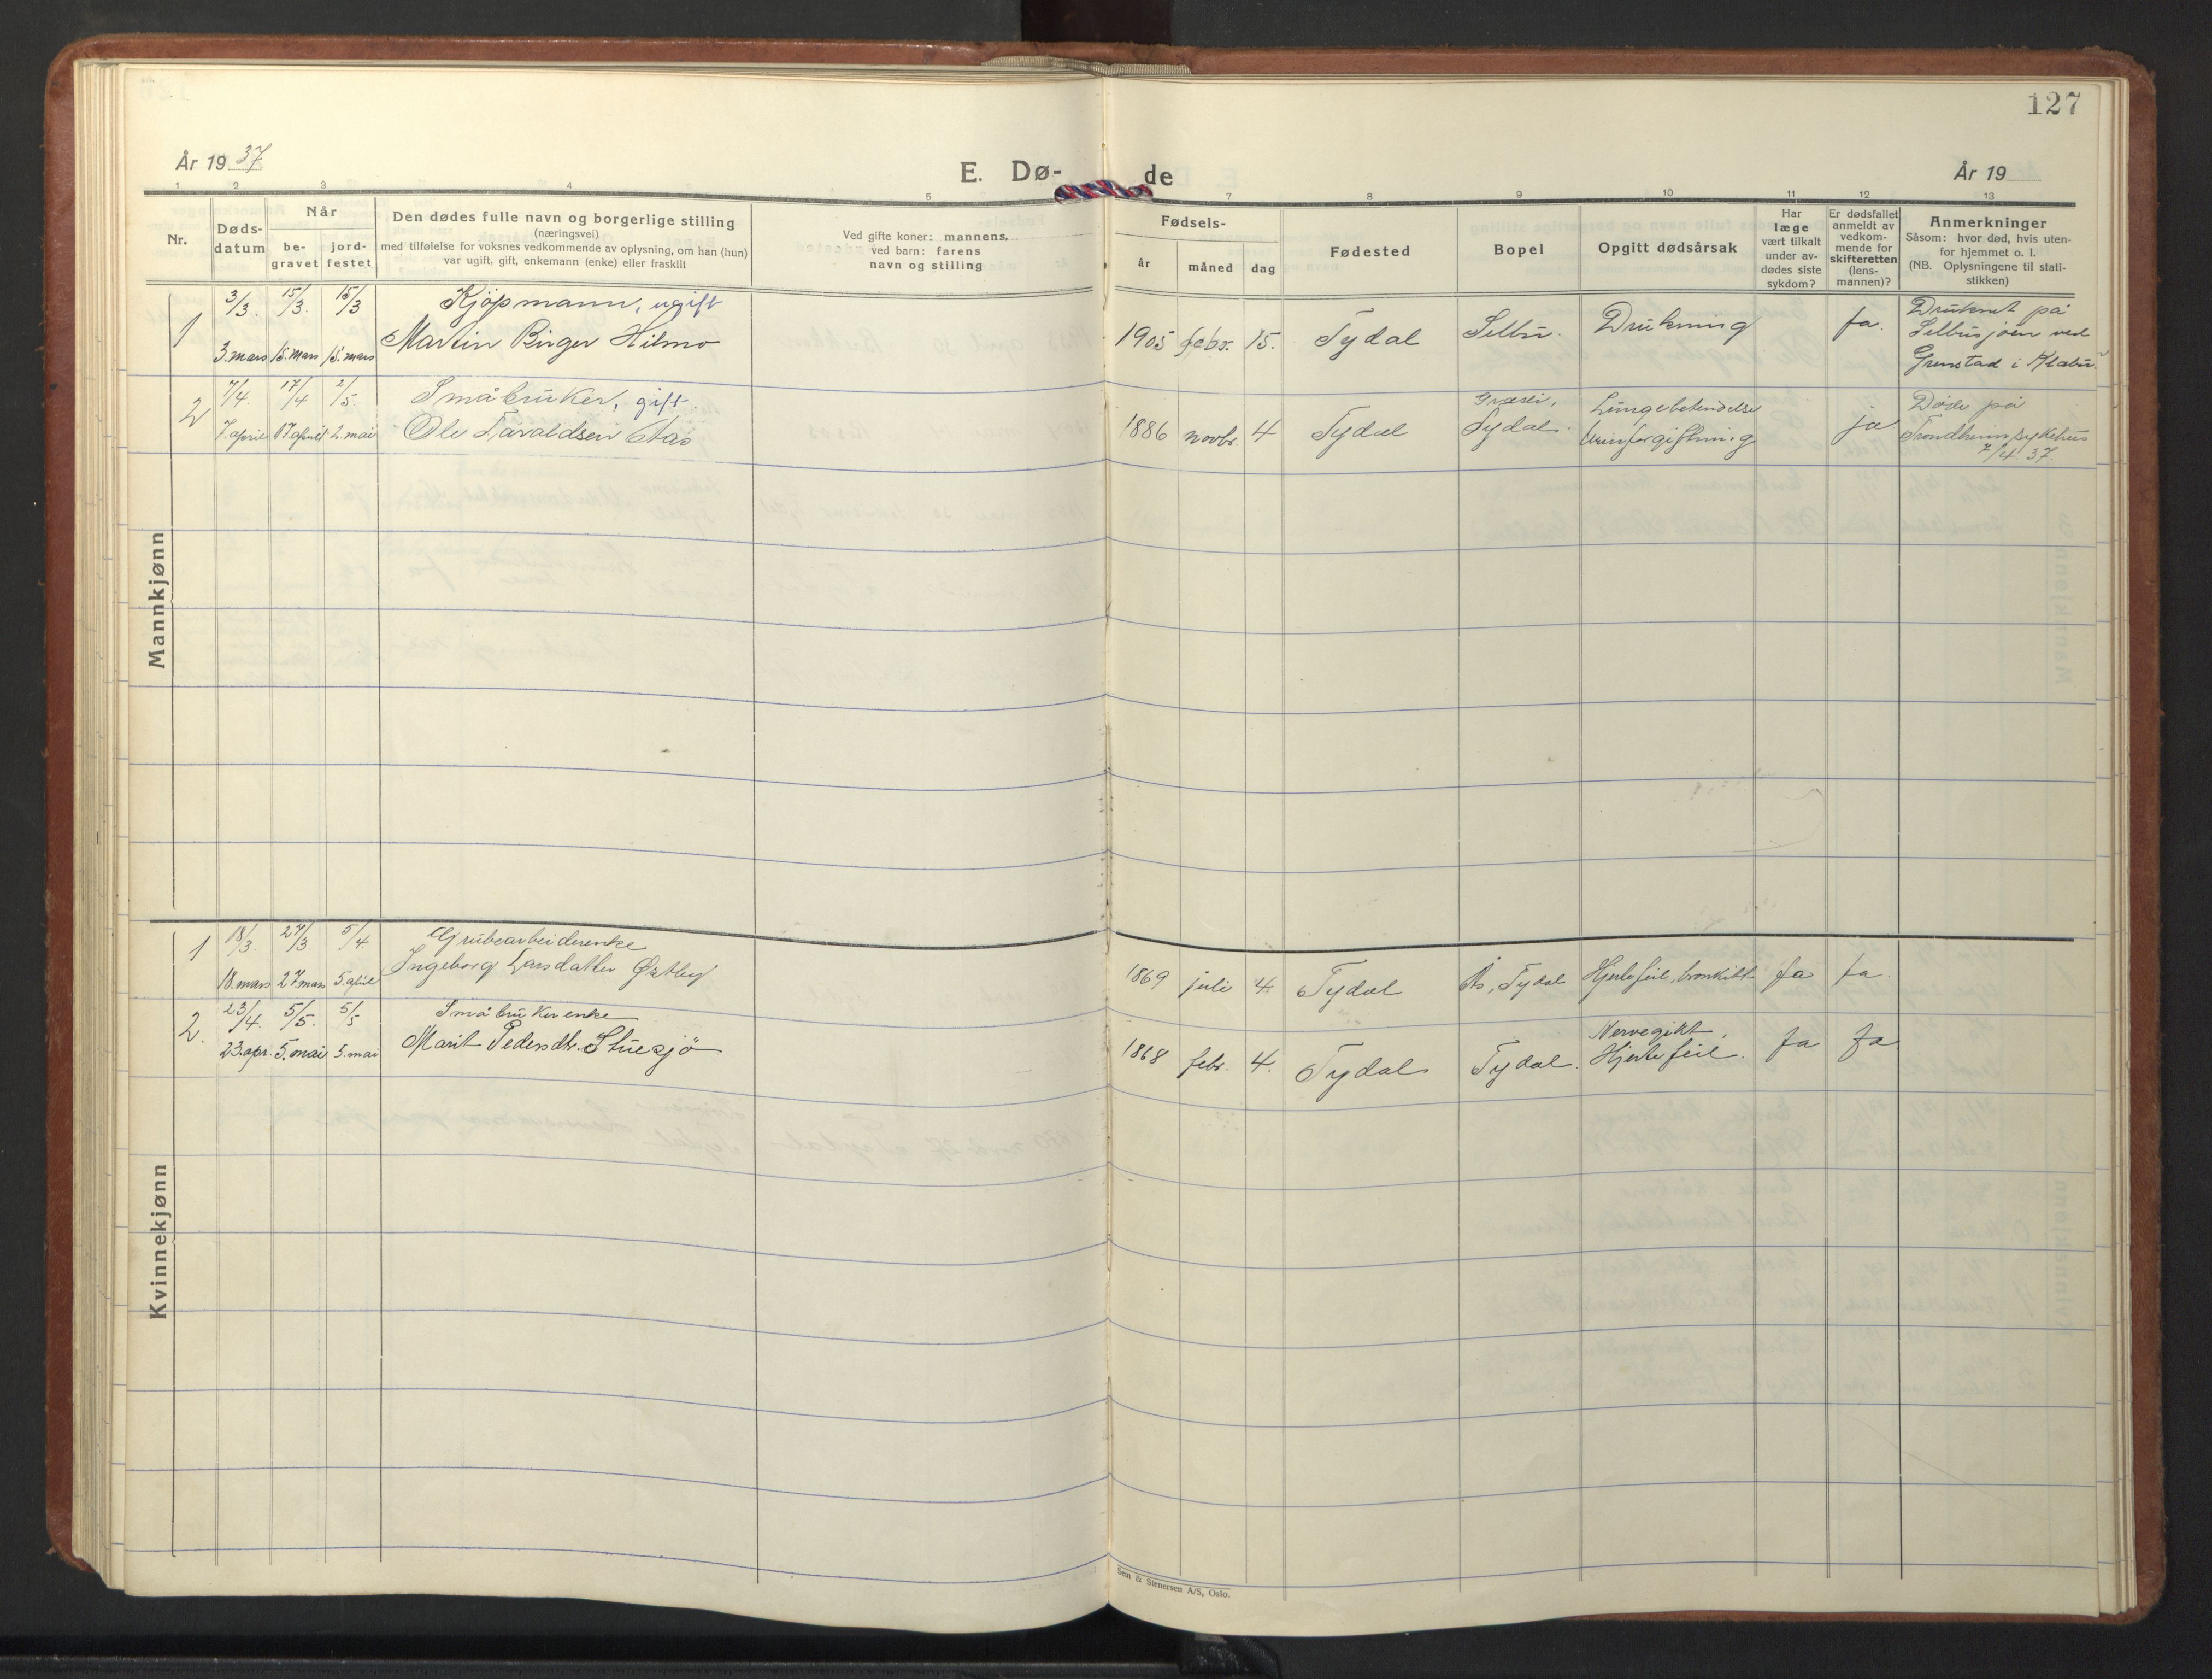 127
År 1937
E. Dø-
de
År 19
1 2 3 4 5 7 8 9 10 11 12 13
Nr.
Døds-
datum
Når
be-
gravet
jord-
festet
Den dødes fulle navn og borgerlige stilling
(næringsvei)
med tilføielse for voksnes vedkommende av oplysning, om han (hun)
var ugift, gift, enkemann (enke) eller fraskilt
Ved gifte koner: mannens,
ved barn: farens
navn og stilling
Fødsels-
år
måned
dag
Fødested
Bopel
Opgitt dødsårsak
Har
læge
vært tilkalt
under av-
dødes siste
sykdom?
Er dødsfallet
anmeldt av
vedkom-
mende for
skifteretten
(lens-
mannen)?
Anmerkninger
Såsom: hvor død, hvis uten-
for hjemmet o. l.
(NB. Oplysningene til stati-
stikken)
Mannkjønn
1
3/3. 15/3. 15/3
3. mars 15. mars 15. mars
Kjöpmann, ugift
Martin Birger Hilmo
1905 febr. 15. Tydal Selbu. Drukning ja.
Druknet på
Selbusjöen ved
Grenstad i Klæbu
2
7/4. 17/4 2/5.
7. april 17. april 2. mai
Småbruker, gift.
Ole Taraldsen Aas
1886 novbr. 4 Tydal
Græsli,
Tydal.
Lungebetendelse
Urinforgiftning
ja
Døde på
Trondheim sykehus
7/4. 37.
Kvinnekjønn
1
18/3. 27/3. 5/4
18. mars 27 mars 5. april
Grubearbeiderenke
Ingeborg Larsdatter Østby
1869 juli 4. Tydal Ås, Tydal Hjertefeil, bronkitt ja ja.
2.
23/4. 5/5. 5/5
23. apr. 5. mai 5. mai
Småbrukerenke
Marit Pedersdtr. Stuesjö
1868 febr. 4. Tydal Tydal.
Nervegikt,
Hjertefeil.
ja ja
Sem & Stenersen A/S, Oslo.